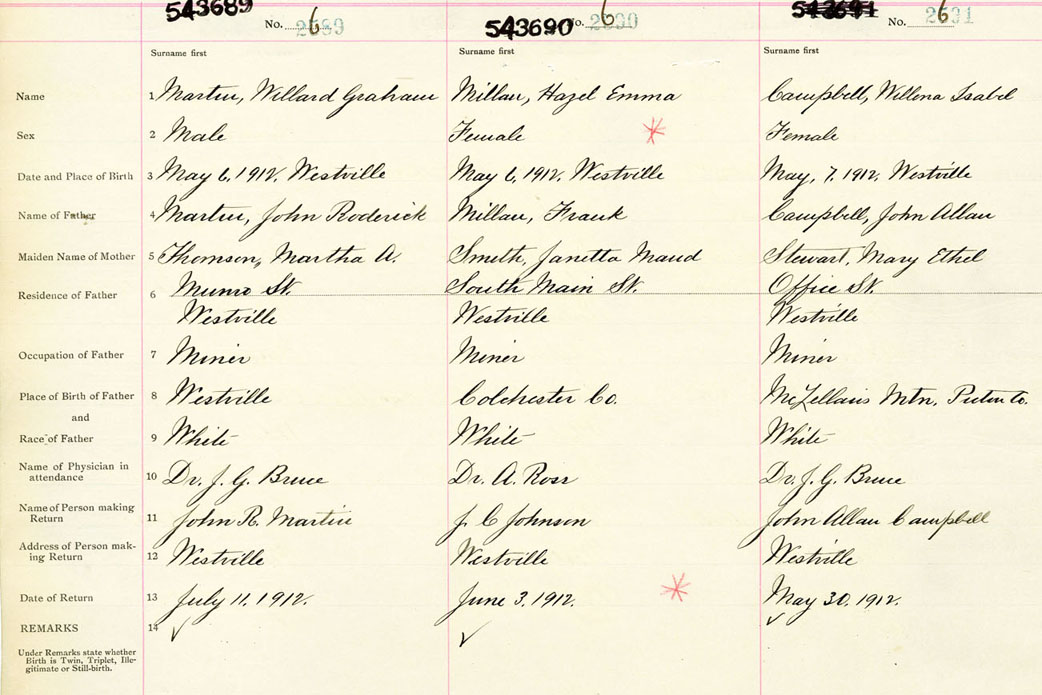 543689 No. 6 2589 543690 No. 6 2590 543691 No. 6 2591
Surname first Surname first Surname first
Name 1 Martin, Willard Graham Millan, Hazel Emma Campbell, Willena Isabel
Sex 2 Male Female Female
Date and Place of Birth 3 May 6, 1912, Westville May 6, 1912, Westville May, 7, 1912, Westville
Name of Father 4 Martin, John Roderick Millan, Frank Campbell, John Allan
Maiden Name of Mother 5 Thomson, Martha A. Smith, Janetta Maud Stewart, Mary Ethel
Residence of Father 6 Munro St. South Main St. Office St.
Westville Westville Westville
Occupation of Father 7 Miner Miner Miner
Place of Birth of Father 8 Westville Colchester Co. McLellans Mtn. Pictou Co.
and
Race of Father 9 White White White
Name of Physician in
attendance 10 Dr. J. G. Bruce Dr. A. Ross Dr. J. G. Bruce
Name of Person making
Return 11 John R. Martin J. C Johnson John Allan Campbell
Address of Person mak-
ing Return 12 Westville Westville Westville
Date of Return 13 July 11. 1912. June 3. 1912. May 30. 1912.
REMARKS 14
Under Remarks state whether
Birth is Twin, Triplet, Ille-
gitimate or Still-birth.